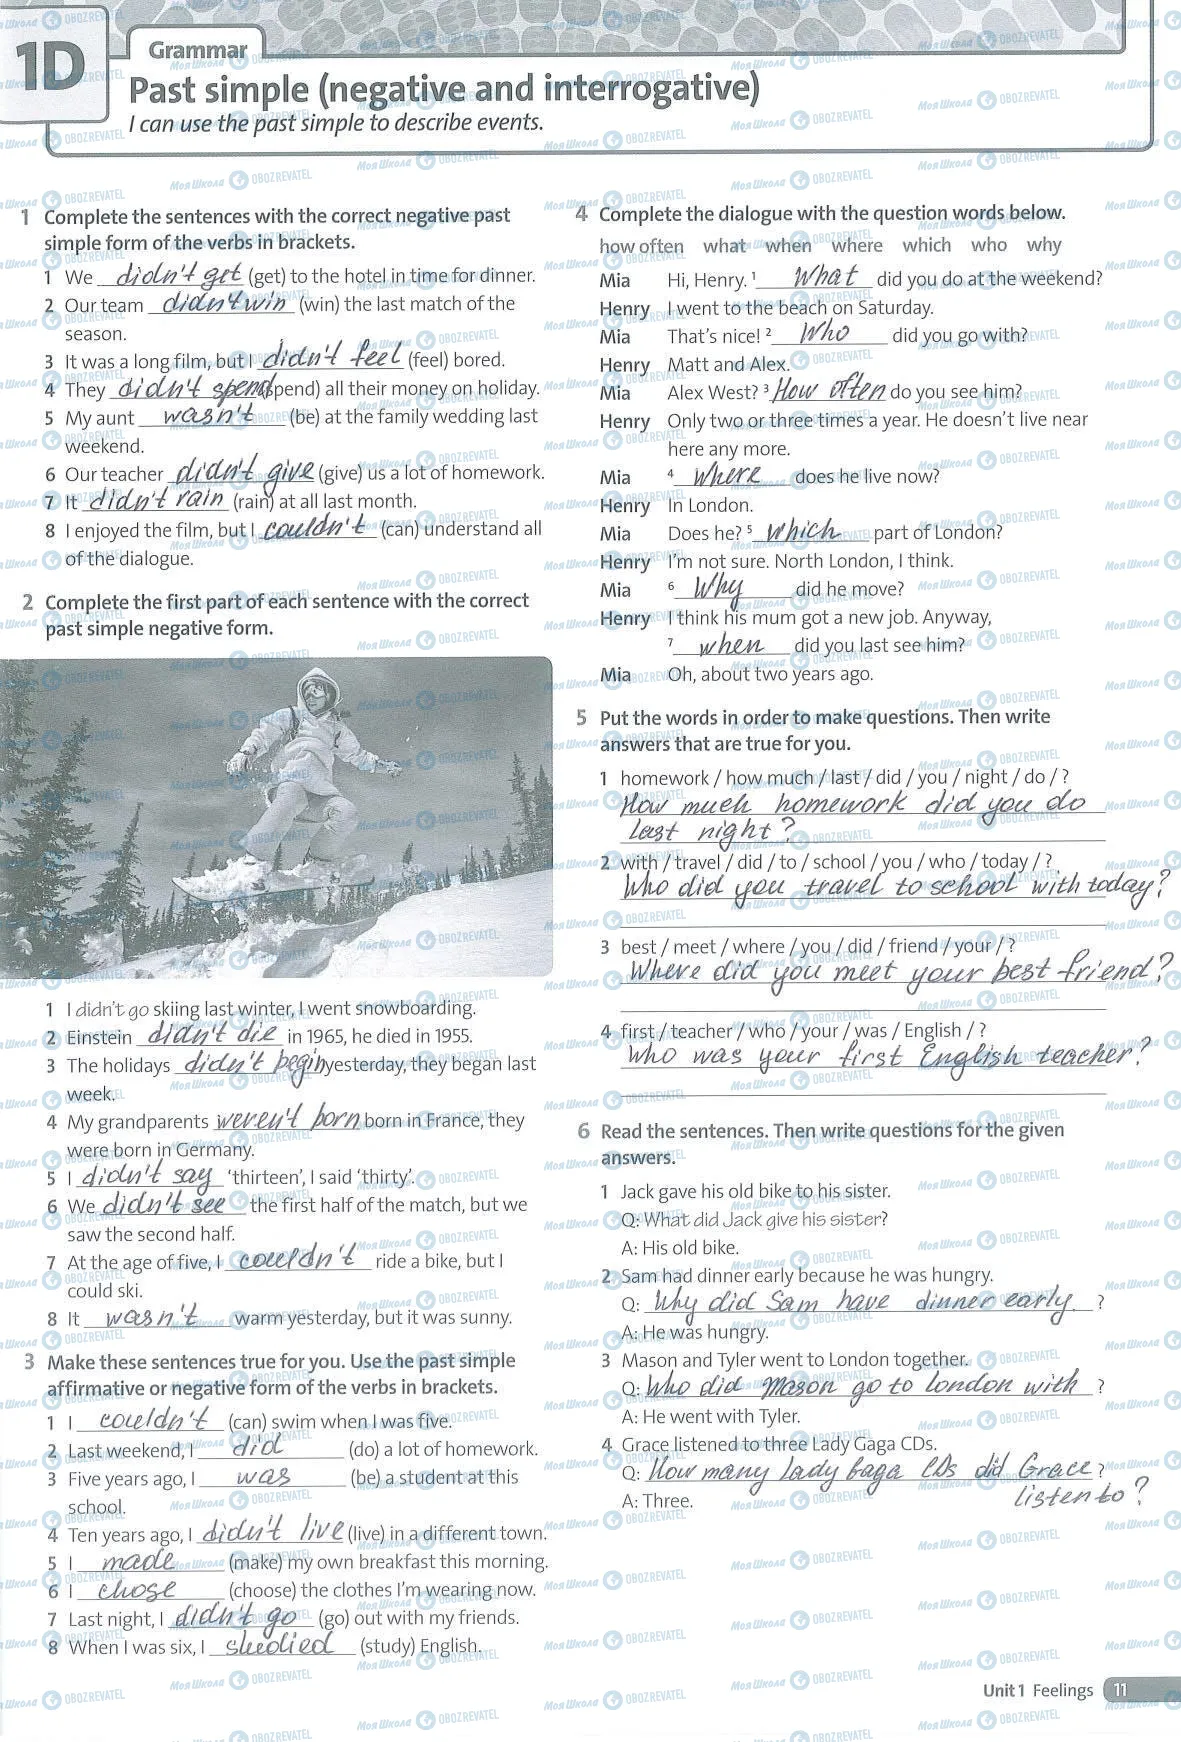 1D
Grammar
Past simple (negative and interrogative)
I can use the past simple to describe events.
1 Complete the sentences with the correct negative past
simple form of the verbs in brackets.
1 We didn't get (get) to the hotel in time for dinner.
2 Our team didn't win (win) the last match of the
season.
3 It was a long film, but I didn't feel (feel) bored.
4 They didn't spend (spend) all their money on holiday.
5 My aunt wasn't (be) at the family wedding last
weekend.
6 Our teacher didn't give (give) us a lot of homework.
7 It didn't rain (rain) at all last month.
8 I enjoyed the film, but I couldn't (can) understand all
of the dialogue.
2 Complete the first part of each sentence with the correct
past simple negative form.
1 I didn't go skiing last winter, I went snowboarding.
2 Einstein didn't die in 1965, he died in 1955.
3 The holidays didn't begin yesterday, they began last
week.
4 My grandparents weren't born born in France, they
were born in Germany.
5 I didn't say 'thirteen', I said 'thirty'.
6 We didn't see the first half of the match, but we
saw the second half.
7 At the age of five, I couldn't ride a bike, but I
could ski.
8 It wasn't warm yesterday, but it was sunny.
3 Make these sentences true for you. Use the past simple
affirmative or negative form of the verbs in brackets.
1 I couldn't (can) swim when I was five.
2 Last weekend, I did (do) a lot of homework.
3 Five years ago, I was (be) a student at this
school.
4 Ten years ago, I didn't live (live) in a different town.
5 I made (make) my own breakfast this morning.
6 I chose (choose) the clothes I'm wearing now.
7 Last night, I didn't go (go) out with my friends.
8 When I was six, I studied (study) English.
4 Complete the dialogue with the question words below.
how often what when where which who why
Mia Hi, Henry. 1 What did you do at the weekend?
Henry I went to the beach on Saturday.
Mia That's nice! 2 Who did you go with?
Henry Matt and Alex.
Mia Alex West? 3 How often do you see him?
Henry Only two or three times a year. He doesn't live near
here any more.
Mia 4 where does he live now?
Henry In London.
Mia Does he? 5 which part of London?
Henry I'm not sure. North London, I think.
Mia 6 Why did he move?
Henry I think his mum got a new job. Anyway,
7 when did you last see him?
Mia Oh, about two years ago.
5 Put the words in order to make questions. Then write
answers that are true for you.
1 homework / how much / last / did / you / night / do / ?
How much homework did you do
last night?
2 with / travel / did / to / school / you / who / today / ?
Who did you travel to school with today?
3 best / meet / where / you / did / friend / your / ?
Where did you meet your best friend?
4 first / teacher / who / your / was / English / ?
Who was your first English teacher?
6 Read the sentences. Then write questions for the given
answers.
1 Jack gave his old bike to his sister.
Q: What did Jack give his sister?
A: His old bike.
2 Sam had dinner early because he was hungry.
Q: Why did Sam have dinner early ?
A: He was hungry.
3 Mason and Tyler went to London together.
Q: Who did Mason go to london with ?
A: He went with Tyler.
4 Grace listened to three Lady Gaga CDs.
Q: How many Lady Gaga CDs did Grace ?
listen to?
A: Three.
Unit 1 Feelings 11
Моя Школа OBOZREVATEL